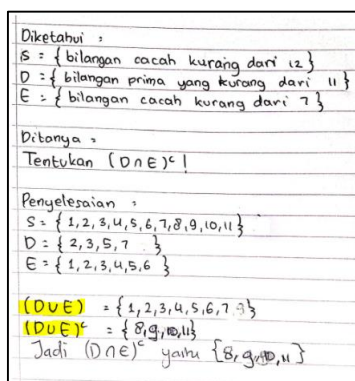 Diketahui :
S = { bilangan cacah kurang dari 12 }
D = { bilangan prima yang kurang dari 11 }
E = { bilangan cacah kurang dari 7 }
Ditanya :
Tentukan (D ∩ E)ᶜ !
Penyelesaian :
S = { 1,2,3,4,5,6,7,8,9,10,11 }
D = { 2,3,5,7 }
E = { 1,2,3,4,5,6 }
(D ∪ E) = { 1,2,3,4,5,6,7 }
(D ∪ E)ᶜ = { 8,9,10,11 }
Jadi (D ∩ E)ᶜ yaitu { 8,9,10,11 }